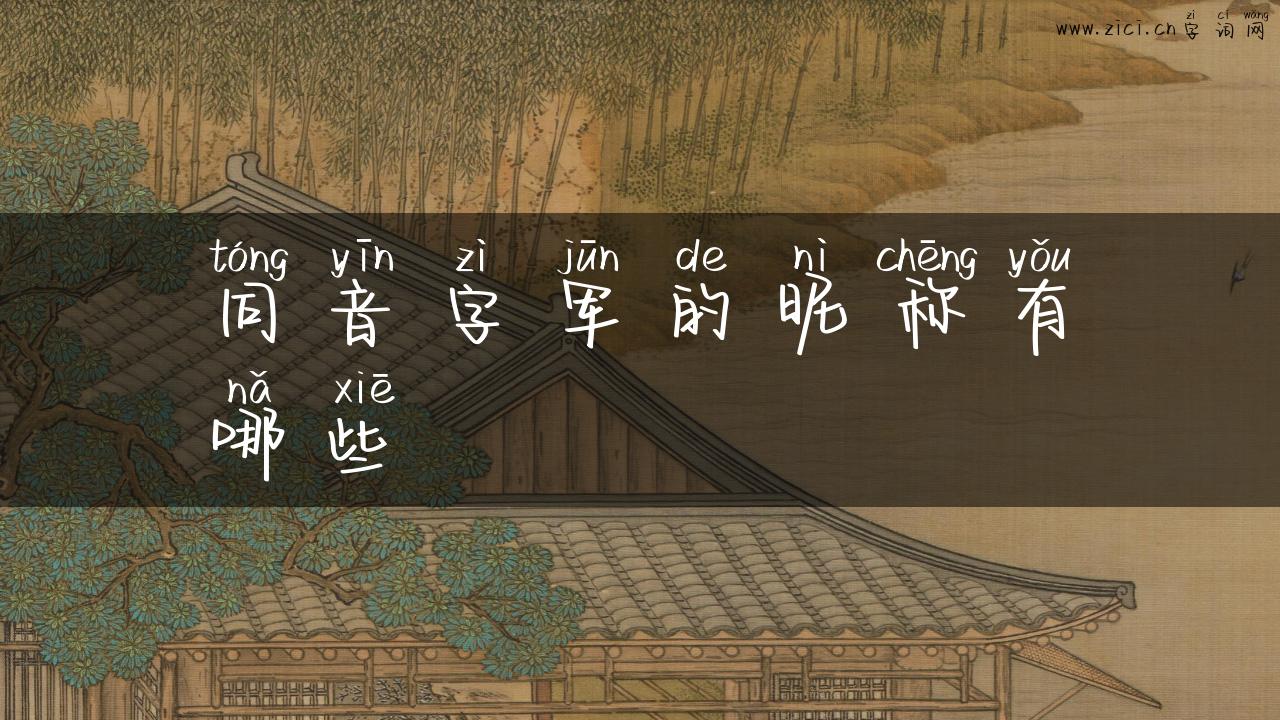 zì cí wǎng
www.zici.cn字词网
tóng yīn zì jūn de nì chēng yǒu
同音字军的昵称有
nǎ xiē
哪些